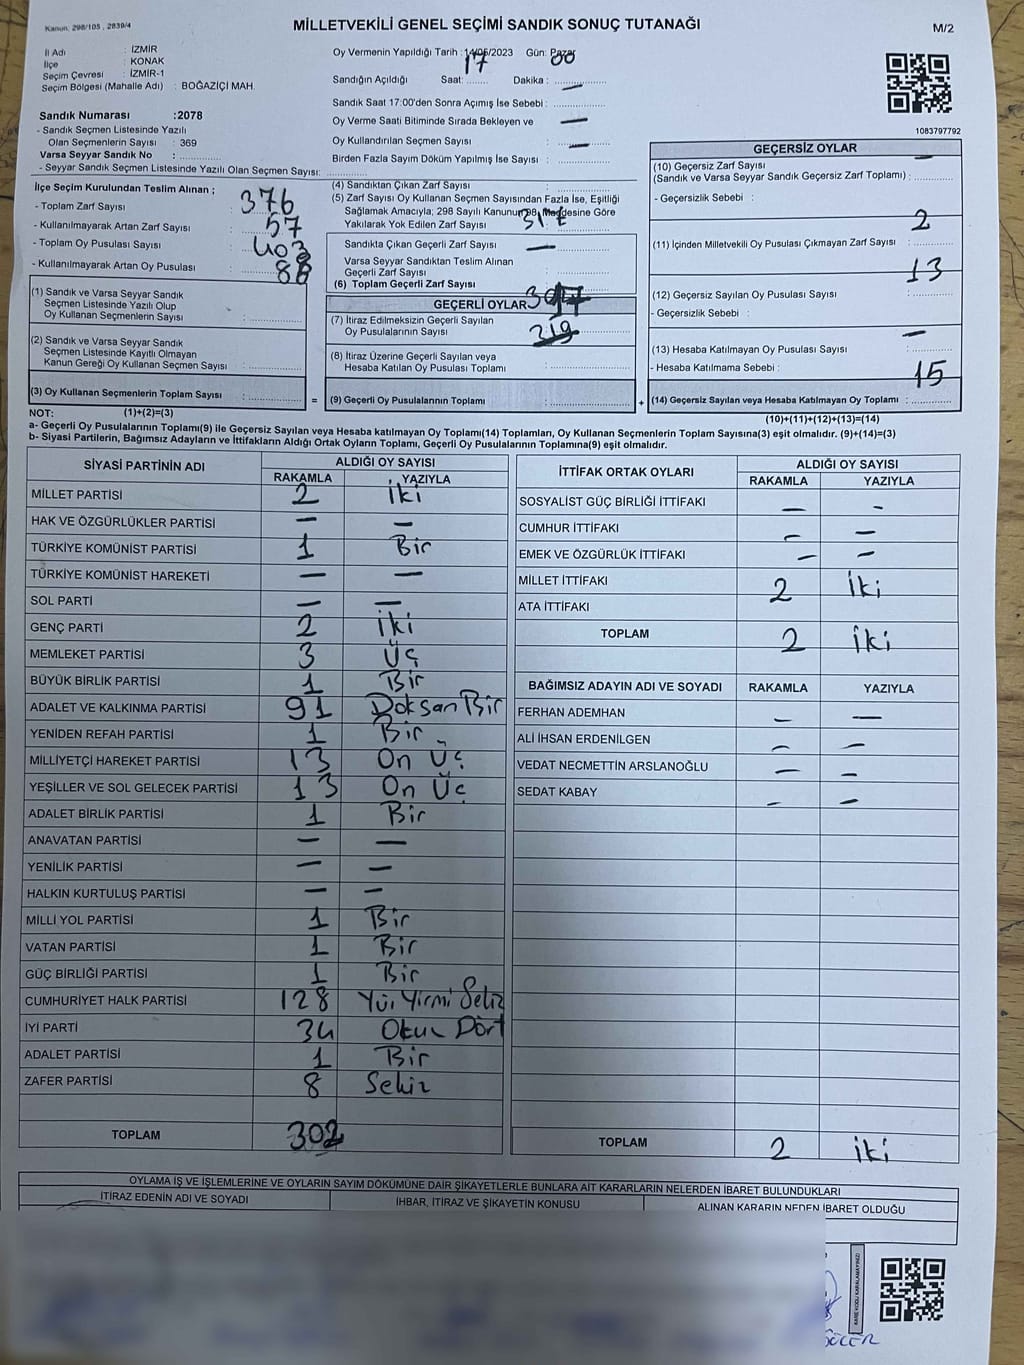 Kanun: 298/105 , 2839/4
MİLLETVEKİLİ GENEL SEÇİMİ SANDIK SONUÇ TUTANAĞI
M/2
İl Adı : İZMİR
İlçe : KONAK
Seçim Çevresi : İZMİR-1
Seçim Bölgesi (Mahalle Adı) : BOĞAZİÇİ MAH.
Sandık Numarası :2078
- Sandık Seçmen Listesinde Yazılı
Olan Seçmenlerin Sayısı : 369
Varsa Seyyar Sandık No : ..............
- Seyyar Sandık Seçmen Listesinde Yazılı Olan Seçmen Sayısı: ..............
Oy Vermenin Yapıldığı Tarih : 14/05/2023 Gün: Pazar
Sandığın Açıldığı Saat: 17 Dakika : 00
Sandık Saat 17:00'den Sonra Açımış İse Sebebi : —
Oy Verme Saati Bitiminde Sırada Bekleyen ve
Oy Kullandırılan Seçmen Sayısı : —
Birden Fazla Sayım Döküm Yapılmış İse Sayısı : —
1083797792
İlçe Seçim Kurulundan Teslim Alınan ;
- Toplam Zarf Sayısı : 376
- Kullanılmayarak Artan Zarf Sayısı : 57
- Toplam Oy Pusulası Sayısı : 403
- Kullanılmayarak Artan Oy Pusulası :
(1) Sandık ve Varsa Seyyar Sandık
Seçmen Listesinde Yazılı Olup
Oy Kullanan Seçmenlerin Sayısı :
(2) Sandık ve Varsa Seyyar Sandık
Seçmen Listesinde Kayıtlı Olmayan
Kanun Gereği Oy Kullanan Seçmen Sayısı :
(3) Oy Kullanan Seçmenlerin Toplam Sayısı :
(1)+(2)=(3)
(4) Sandıktan Çıkan Zarf Sayısı :
(5) Zarf Sayısı Oy Kullanan Seçmen Sayısından Fazla İse, Eşitliği
Sağlamak Amacıyla; 298 Sayılı Kanunun 98. Maddesine Göre
Yakılarak Yok Edilen Zarf Sayısı :
Sandıkta Çıkan Geçerli Zarf Sayısı : —
Varsa Seyyar Sandıktan Teslim Alınan
Geçerli Zarf Sayısı :
(6) Toplam Geçerli Zarf Sayısı :
GEÇERLİ OYLAR
(7) İtiraz Edilmeksizin Geçerli Sayılan
Oy Pusulalarının Sayısı :
(8) İtiraz Üzerine Geçerli Sayılan veya
Hesaba Katılan Oy Pusulası Toplamı :
= (9) Geçerli Oy Pusulalarının Toplamı :
GEÇERSİZ OYLAR
(10) Geçersiz Zarf Sayısı —
(Sandık ve Varsa Seyyar Sandık Geçersiz Zarf Toplamı) :
- Geçersizlik Sebebi :
2
(11) İçinden Milletvekili Oy Pusulası Çıkmayan Zarf Sayısı :
13
(12) Geçersiz Sayılan Oy Pusulası Sayısı :
- Geçersizlik Sebebi :
—
(13) Hesaba Katılmayan Oy Pusulası Sayısı :
- Hesaba Katılmama Sebebi : 15
+ (14) Geçersiz Sayılan veya Hesaba Katılmayan Oy Toplamı :
(10)+(11)+(12)+(13)=(14)
NOT:
a- Geçerli Oy Pusulalarının Toplamı(9) ile Geçersiz Sayılan veya Hesaba katılmayan Oy Toplamı(14) Toplamları, Oy Kullanan Seçmenlerin Toplam Sayısına(3) eşit olmalıdır. (9)+(14)=(3)
b- Siyasi Partilerin, Bağımsız Adayların ve İttifakların Aldığı Ortak Oyların Toplamı, Geçerli Oy Pusulalarının Toplamına(9) eşit olmalıdır.
SİYASİ PARTİNİN ADI ALDIĞI OY SAYISI
RAKAMLA YAZIYLA
MİLLET PARTİSİ 2 İki
HAK VE ÖZGÜRLÜKLER PARTİSİ — —
TÜRKİYE KOMÜNİST PARTİSİ 1 Bir
TÜRKİYE KOMÜNİST HAREKETİ — —
SOL PARTİ — —
GENÇ PARTİ 2 İki
MEMLEKET PARTİSİ 3 Üç
BÜYÜK BİRLİK PARTİSİ 1 Bir
ADALET VE KALKINMA PARTİSİ 91 Doksan Bir
YENİDEN REFAH PARTİSİ 1 Bir
MİLLİYETÇİ HAREKET PARTİSİ 13 On Üç
YEŞİLLER VE SOL GELECEK PARTİSİ 13 On Üç
ADALET BİRLİK PARTİSİ 1 Bir
ANAVATAN PARTİSİ — —
YENİLİK PARTİSİ — —
HALKIN KURTULUŞ PARTİSİ — —
MİLLİ YOL PARTİSİ 1 Bir
VATAN PARTİSİ 1 Bir
GÜÇ BİRLİĞİ PARTİSİ 1 Bir
CUMHURİYET HALK PARTİSİ 128 Yüz Yirmi Sekiz
İYİ PARTİ 34 Otuz Dört
ADALET PARTİSİ 1 Bir
ZAFER PARTİSİ 8 Sekiz
TOPLAM 302
İTTİFAK ORTAK OYLARI ALDIĞI OY SAYISI
RAKAMLA YAZIYLA
SOSYALİST GÜÇ BİRLİĞİ İTTİFAKI — -
CUMHUR İTTİFAKI — —
EMEK VE ÖZGÜRLÜK İTTİFAKI — —
MİLLET İTTİFAKI 2 İki
ATA İTTİFAKI
TOPLAM 2 İki
BAĞIMSIZ ADAYIN ADI VE SOYADI RAKAMLA YAZIYLA
FERHAN ADEMHAN — —
ALİ İHSAN ERDENİLGEN — —
VEDAT NECMETTİN ARSLANOĞLU — —
SEDAT KABAY — —
TOPLAM 2 İki
OYLAMA İŞ VE İŞLEMLERİNE VE OYLARIN SAYIM DÖKÜMÜNE DAİR ŞİKAYETLERLE BUNLARA AİT KARARLARIN NELERDEN İBARET BULUNDUKLARI
İTİRAZ EDENİN ADI VE SOYADI İHBAR, İTİRAZ VE ŞİKAYETİN KONUSU ALINAN KARARIN NEDEN İBARET OLDUĞU
KARE KODU KARALAMAYINIZ!